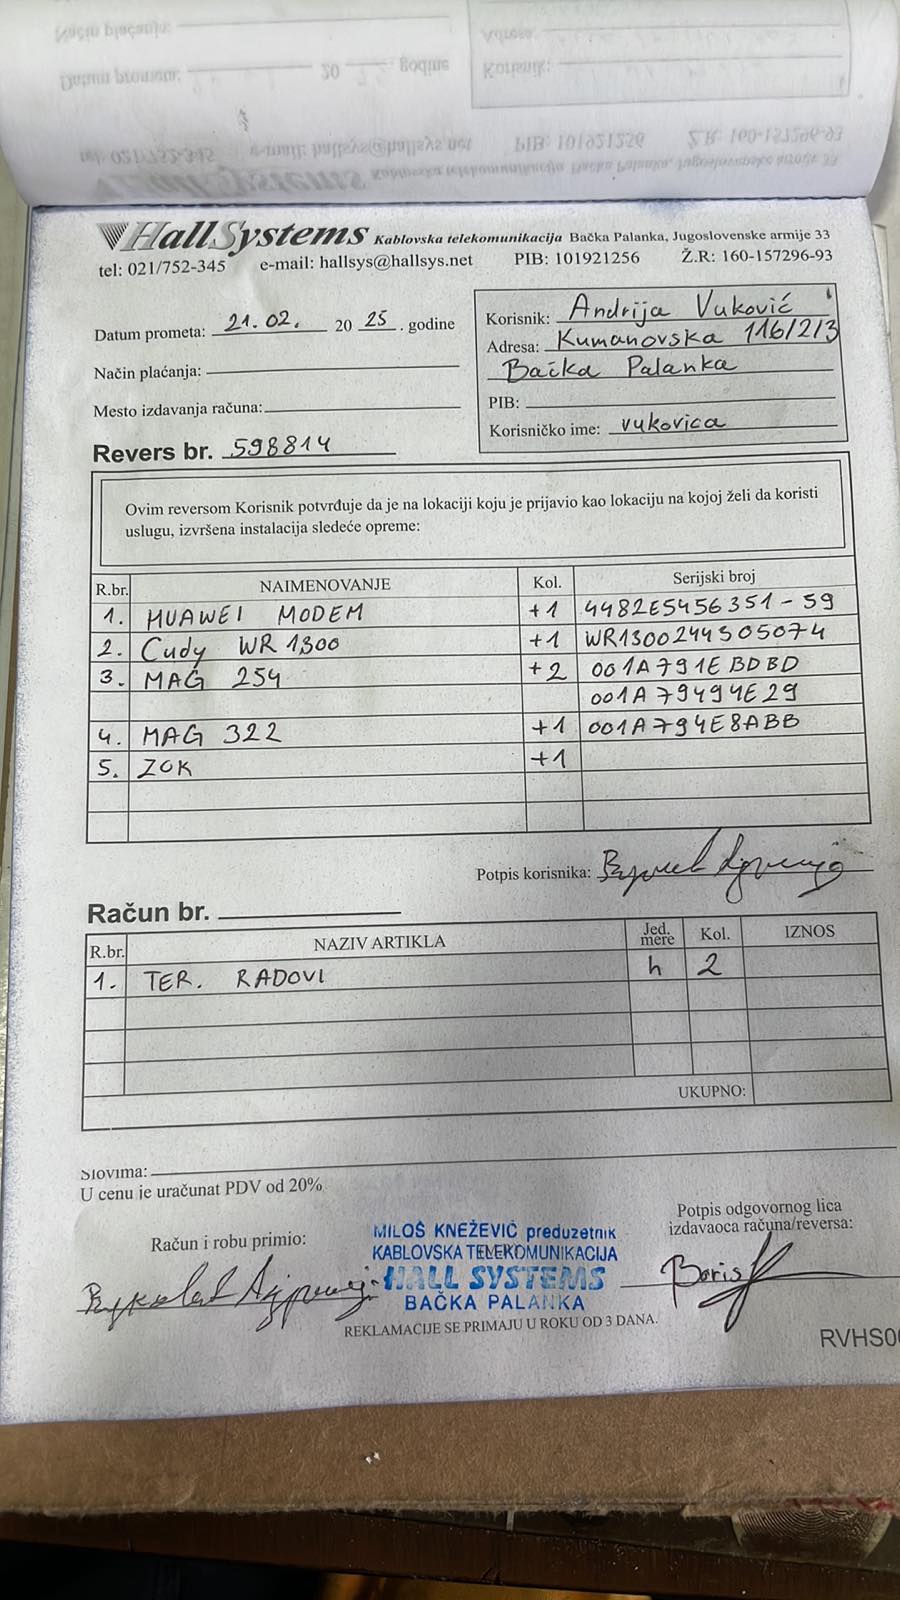 HallSystems Kablovska telekomunikacija Bačka Palanka, Jugoslovenske armije 33
tel: 021/752-345 e-mail: hallsys@hallsys.net PIB: 101921256 Ž.R: 160-157296-93
Datum prometa: 21.02. 20 25. godine
Način plaćanja:
Mesto izdavanja računa:
Revers br. 598814
Korisnik: Andrija Vuković
Adresa: Kumanovska 116/2/3
Bačka Palanka
PIB:
Korisničko ime: vukovica
Ovim reversom Korisnik potvrđuje da je na lokaciji koju je prijavio kao lokaciju na kojoj želi da koristi
uslugu, izvršena instalacija sledeće opreme:
R.br. NAIMENOVANJE Kol. Serijski broj
1. HUAWEI MODEM +1 4482E5456351-59
2. Cudy WR 1300 +1 WR1300244505074
3. MAG 254 +2 001A791EBDBD
001A79494E29
4. MAG 322 +1 001A794E8ABB
5. ZOK +1
Potpis korisnika:
Račun br.
R.br. NAZIV ARTIKLA Jed. mere Kol. IZNOS
1. TER. RADOVI h 2
UKUPNO:
Slovima:
U cenu je uračunat PDV od 20%
Račun i robu primio:
MILOŠ KNEŽEVIĆ preduzetnik
KABLOVSKA TELEKOMUNIKACIJA
HALL SYSTEMS
BAČKA PALANKA
Potpis odgovornog lica
izdavaoca računa/reversa:
Boris
REKLAMACIJE SE PRIMAJU U ROKU OD 3 DANA.
RVHS00